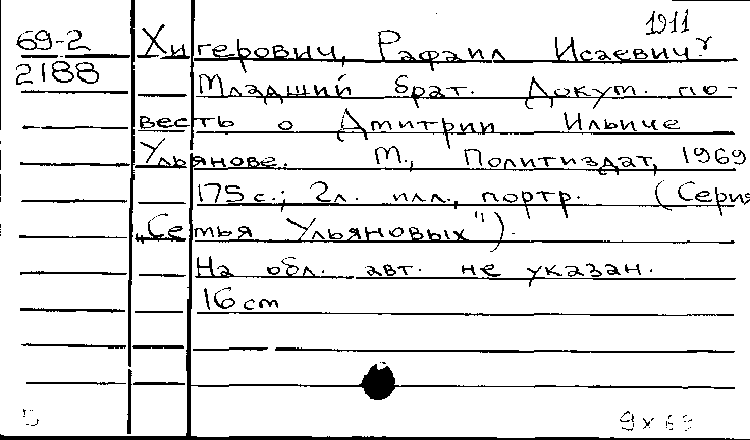 1911
69-2 Хигерович, Рафаил Исаевич.
2188 Младший брат. Докут. по-
весть о Дмитрии Ильиче
Ульянове. М., Политиздат, 1969
175 с.; 2л. илл., портр. (Серия
„Семья Ульяновых").
На обл. авт. не указан.
16 cm